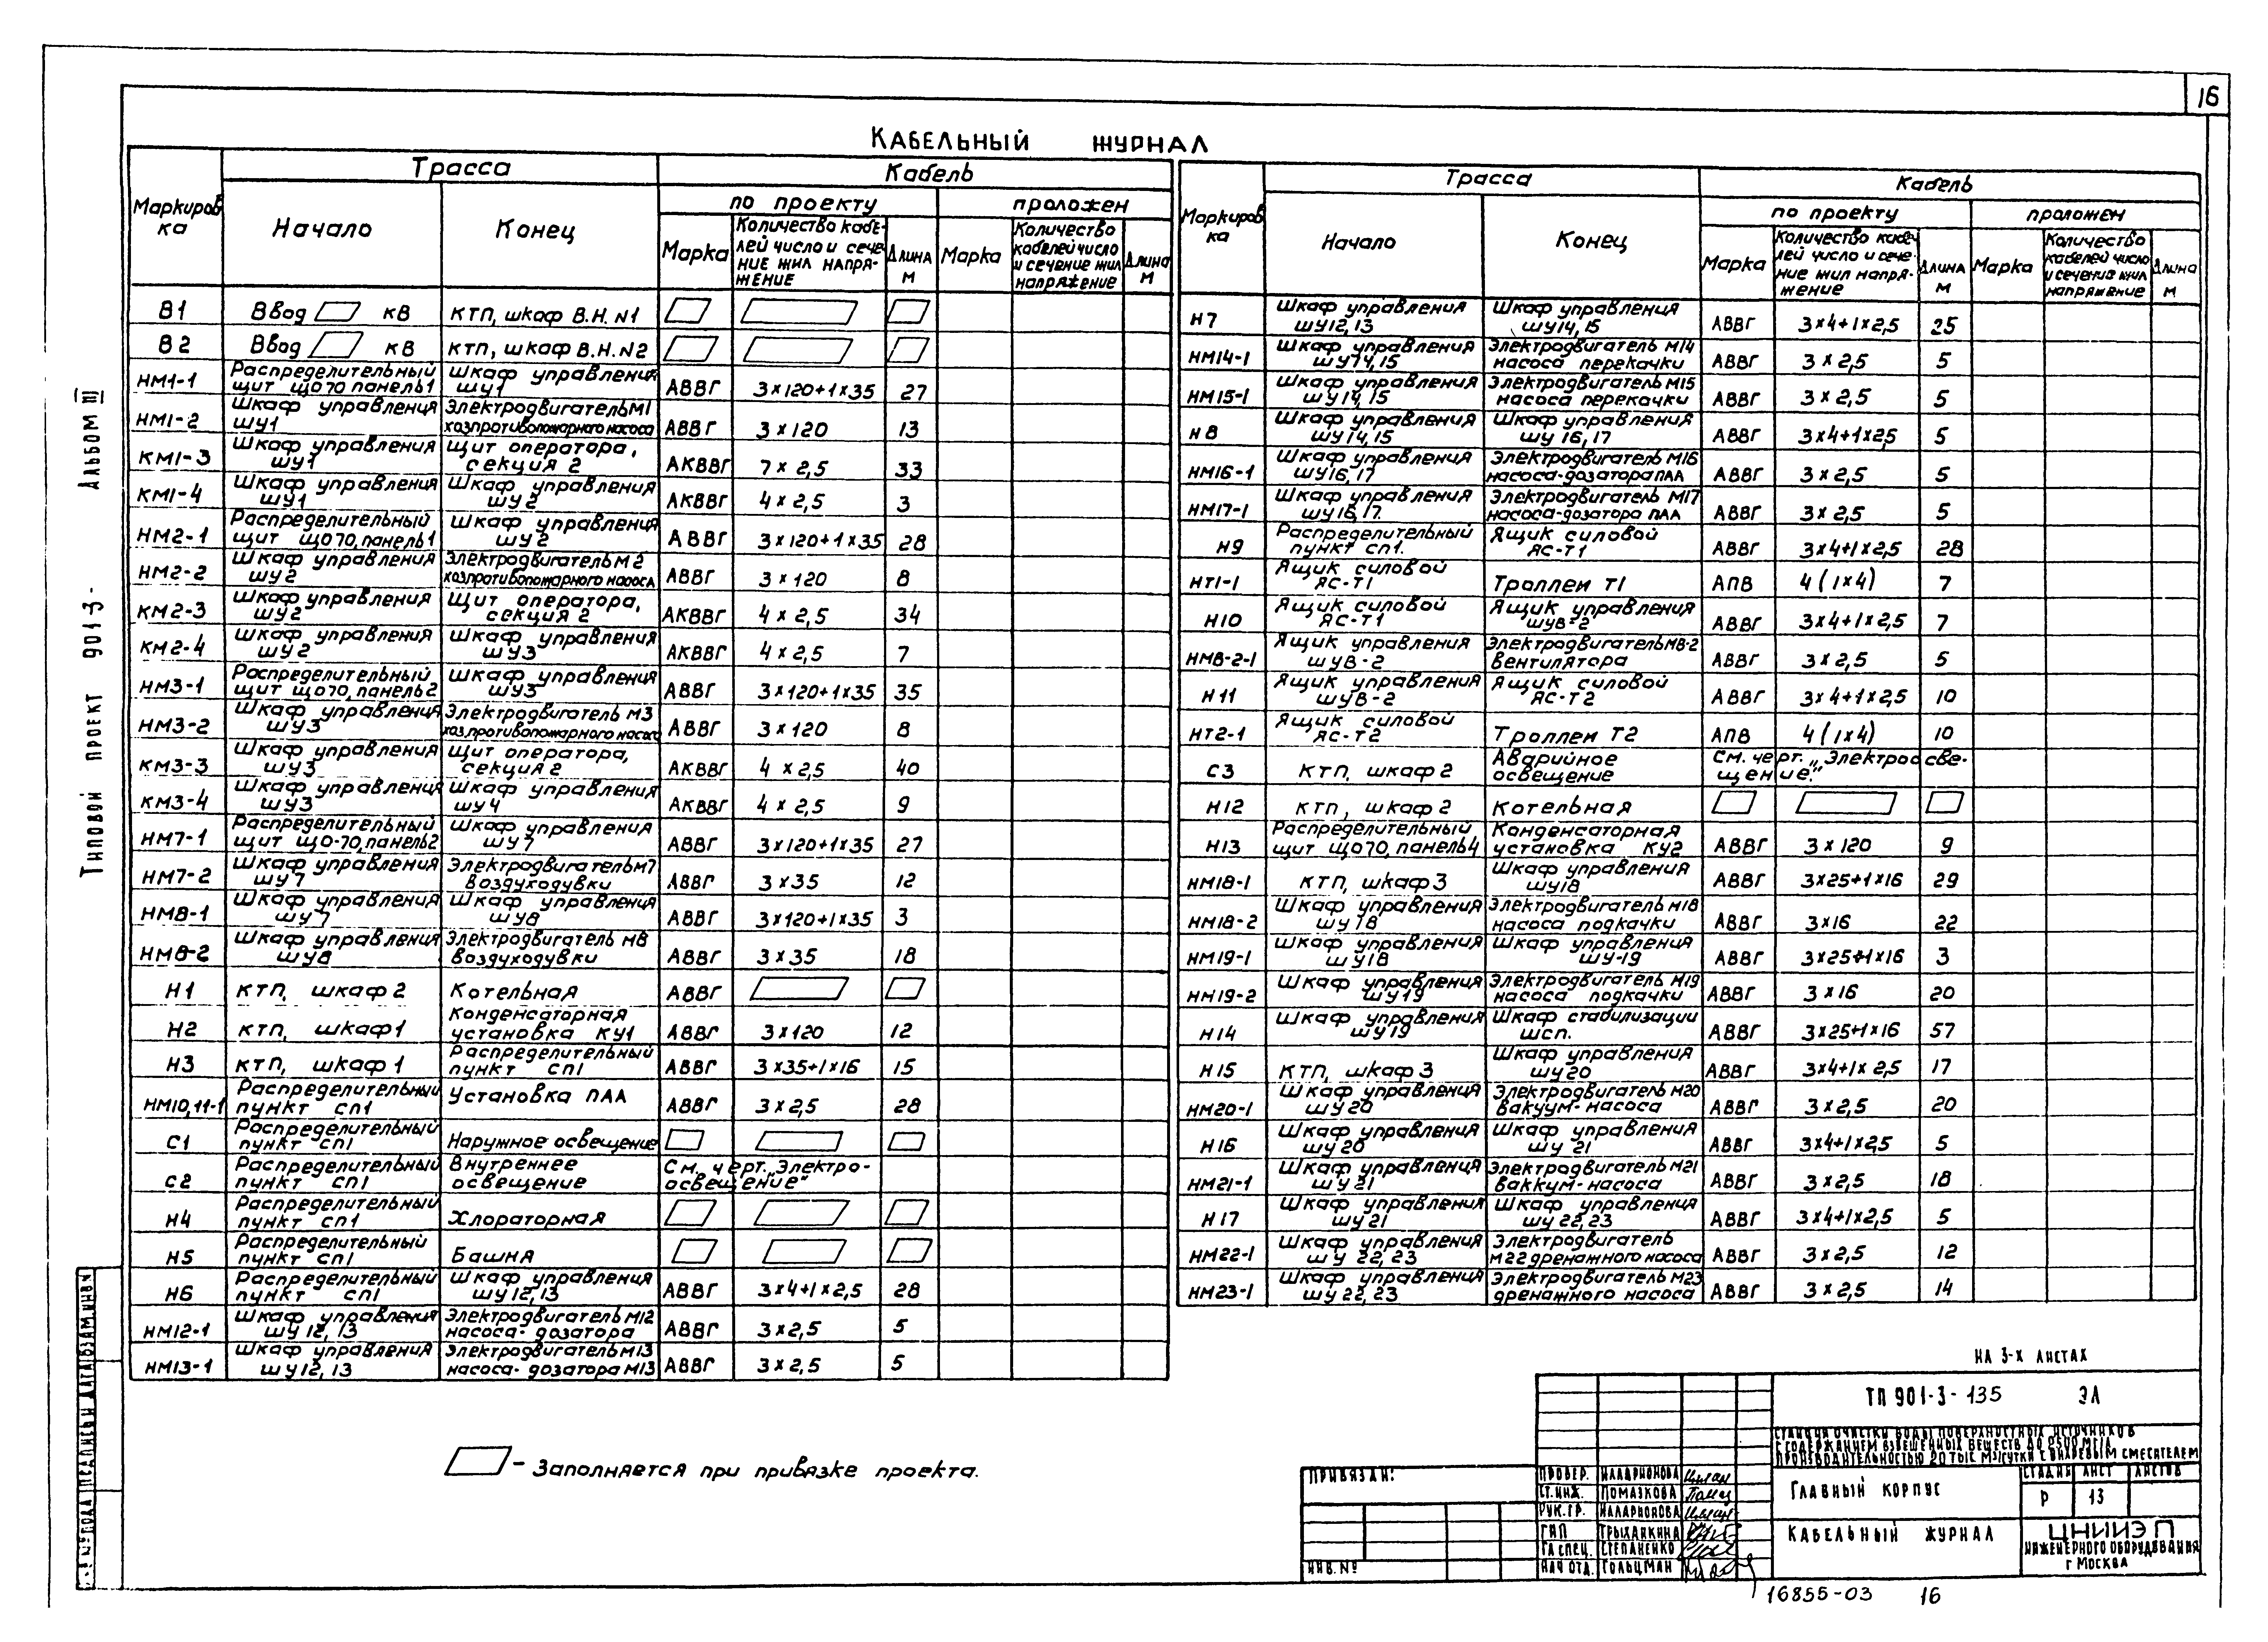 16
КАБЕЛЬНЫЙ ЖУРНАЛ
Типовой проект 901-3- Альбом III
Маркировка Трасса Кабель
Начало Конец по проекту проложен
Марка Количество кабелей число и сечение жил напряжение Длина м Марка Количество кабелей число и сечение жил напряжение Длина м
В1 Ввод кВ КТП, шкаф В.Н. N1
В2 Ввод кВ КТП, шкаф В.Н. N2
НМ1-1 Распределительный щит ЩО70 панель1 Шкаф управления ШУ1 АВВГ 3×120+1×35 27
НМ1-2 Шкаф управления ШУ1 Электродвигатель М1 хозпротивопожарного насоса АВВГ 3×120 13
КМ1-3 Шкаф управления ШУ1 Щит оператора, секция 2 АКВВГ 7×2,5 33
КМ1-4 Шкаф управления ШУ1 Шкаф управления ШУ2 АКВВГ 4×2,5 3
НМ2-1 Распределительный щит ЩО70, панель1 Шкаф управления ШУ2 АВВГ 3×120+1×35 28
НМ2-2 Шкаф управления ШУ2 Электродвигатель М2 хозпротивопожарного насоса АВВГ 3×120 8
КМ2-3 Шкаф управления ШУ2 Щит оператора, секция 2 АКВВГ 4×2,5 34
КМ2-4 Шкаф управления ШУ2 Шкаф управления ШУ3 АКВВГ 4×2,5 7
НМ3-1 Распределительный щит ЩО70, панель2 Шкаф управления ШУ3 АВВГ 3×120+1×35 35
НМ3-2 Шкаф управления ШУ3 Электродвигатель М3 хоз.противопожарного насоса АВВГ 3×120 8
КМ3-3 Шкаф управления ШУ3 Щит оператора, секция 2 АКВВГ 4×2,5 40
КМ3-4 Шкаф управления ШУ3 Шкаф управления ШУ4 АКВВГ 4×2,5 9
НМ7-1 Распределительный щит ЩО-70, панель2 Шкаф управления ШУ7 АВВГ 3×120+1×35 27
НМ7-2 Шкаф управления ШУ7 Электродвигатель М7 воздуходувки АВВГ 3×35 12
НМ8-1 Шкаф управления ШУ7 Шкаф управления ШУ8 АВВГ 3×120+1×35 3
НМ8-2 Шкаф управления ШУ8 Электродвигатель М8 воздуходувки АВВГ 3×35 18
Н1 КТП, шкаф 2 Котельная АВВГ
Н2 КТП, шкаф 1 Конденсаторная установка КУ1 АВВГ 3×120 12
Н3 КТП, шкаф 1 Распределительный пункт СП1 АВВГ 3×35+1×16 15
НМ10,11-1 Распределительный пункт СП1 Установка ПАА АВВГ 3×2,5 28
С1 Распределительный пункт СП1 Наружное освещение
С2 Распределительный пункт СП1 Внутреннее освещение См. черт. „Электроосвещение"
Н4 Распределительный пункт СП1 Хлораторная
Н5 Распределительный пункт СП1 Башня
Н6 Распределительный пункт СП1 Шкаф управления ШУ12,13 АВВГ 3×4+1×2,5 28
НМ12-1 Шкаф управления ШУ12,13 Электродвигатель М12 насоса-дозатора АВВГ 3×2,5 5
НМ13-1 Шкаф управления ШУ12,13 Электродвигатель М13 насоса-дозатора М13 АВВГ 3×2,5 5
Маркировка Трасса Кабель
Начало Конец по проекту проложен
Марка Количество кабелей число и сечение жил напряжение Длина м Марка Количество кабелей число и сечения жил напряжение Длина м
Н7 Шкаф управления ШУ12,13 Шкаф управления ШУ14,15 АВВГ 3×4+1×2,5 25
НМ14-1 Шкаф управления ШУ14,15 Электродвигатель М14 насоса перекачки АВВГ 3×2,5 5
НМ15-1 Шкаф управления ШУ14,15 Электродвигатель М15 насоса перекачки АВВГ 3×2,5 5
Н8 Шкаф управления ШУ14,15 Шкаф управления ШУ16,17 АВВГ 3×4+1×2,5 5
НМ16-1 Шкаф управления ШУ16,17 Электродвигатель М16 насоса-дозатора ПАА АВВГ 3×2,5 5
НМ17-1 Шкаф управления ШУ16,17. Электродвигатель М17 насоса-дозатора ПАА АВВГ 3×2,5 5
Н9 Распределительный пункт СП1. Ящик силовой ЯС-Т1 АВВГ 3×4+1×2,5 28
НТ1-1 Ящик силовой ЯС-Т1 Троллеи Т1 АПВ 4(1×4) 7
Н10 Ящик силовой ЯС-Т1 Ящик управления ШУВ-2 АВВГ 3×4+1×2,5 7
НМВ-2-1 Ящик управления ШУВ-2 Электродвигатель МВ-2 вентилятора АВВГ 3×2,5 5
Н11 Ящик управления ШУВ-2 Ящик силовой ЯС-Т2 АВВГ 3×4+1×2,5 10
НТ2-1 Ящик силовой ЯС-Т2 Троллеи Т2 АПВ 4(1×4) 10
С3 КТП, шкаф 2 Аварийное освещение См. черт. „Электроосвещение."
Н12 КТП, шкаф 2 Котельная
Н13 Распределительный щит ЩО70, панель4 Конденсаторная установка КУ2 АВВГ 3×120 9
НМ18-1 КТП, шкаф 3 Шкаф управления ШУ18 АВВГ 3×25+1×16 29
НМ18-2 Шкаф управления ШУ18 Электродвигатель М18 насоса подкачки АВВГ 3×16 22
НМ19-1 Шкаф управления ШУ18 Шкаф управления ШУ-19 АВВГ 3×25+1×16 3
НМ19-2 Шкаф управления ШУ19 Электродвигатель М19 насоса подкачки АВВГ 3×16 20
Н14 Шкаф управления ШУ19 Шкаф стабилизации ШСП. АВВГ 3×25+1×16 57
Н15 КТП, шкаф 3 Шкаф управления ШУ20 АВВГ 3×4+1×2,5 17
НМ20-1 Шкаф управления ШУ20 Электродвигатель М20 вакуум-насоса АВВГ 3×2,5 20
Н16 Шкаф управления ШУ20 Шкаф управления ШУ21 АВВГ 3×4+1×2,5 5
НМ21-1 Шкаф управления ШУ21 Электродвигатель М21 ваккум-насоса АВВГ 3×2,5 18
Н17 Шкаф управления ШУ21 Шкаф управления ШУ22,23 АВВГ 3×4+1×2,5 5
НМ22-1 Шкаф управления ШУ22,23 Электродвигатель М22 дренажного насоса АВВГ 3×2,5 12
НМ23-1 Шкаф управления ШУ22,23 Электродвигатель М23 дренажного насоса АВВГ 3×2,5 14
– Заполняется при привязке проекта.
НА 3-Х ЛИСТАХ
ТП 901-3-135 ЭЛ
СТАНЦИЯ ОЧИСТКИ ВОДЫ ПОВЕРХНОСТНЫХ ИСТОЧНИКОВ
С СОДЕРЖАНИЕМ ВЗВЕШЕННЫХ ВЕЩЕСТВ ДО 2500 МГ/Л
ПРОИЗВОДИТЕЛЬНОСТЬЮ 20 ТЫС М3/СУТКИ С ВИХРЕВЫМ СМЕСИТЕЛЕМ
ПРИВЯЗАН:
ИНВ. №
ПРОВЕР. ИЛЛАРИОНОВА
СТ. ИНЖ. ПОМАЗКОВА
РУК. ГР. ИЛЛАРИОНОВА
ГИП ТРЫХАНКИНА
ГЛ СПЕЦ. СТЕПАНЕНКО
НАЧ ОТД. ГОЛЬЦМАН
ГЛАВНЫЙ КОРПУС
СТАДИЯ ЛИСТ ЛИСТОВ
Р 13
КАБЕЛЬНЫЙ ЖУРНАЛ
ЦНИИЭП
ИНЖЕНЕРНОГО ОБОРУДОВАНИЯ
г МОСКВА
16855-03 16
ПОДПИСЬ И ДАТА ВЗАМ. ИНВ N